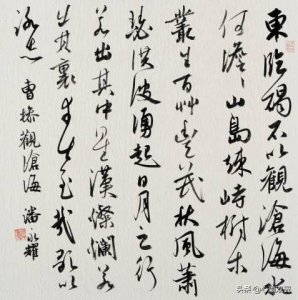 東臨碣石以觀滄海水
何澹澹山島竦峙樹木
叢生百草豐茂秋風蕭
瑟洪波湧起日月之行
若出其中星漢燦爛若
出其裏幸甚至哉歌以
詠志 曹操觀滄海 潘
頭条